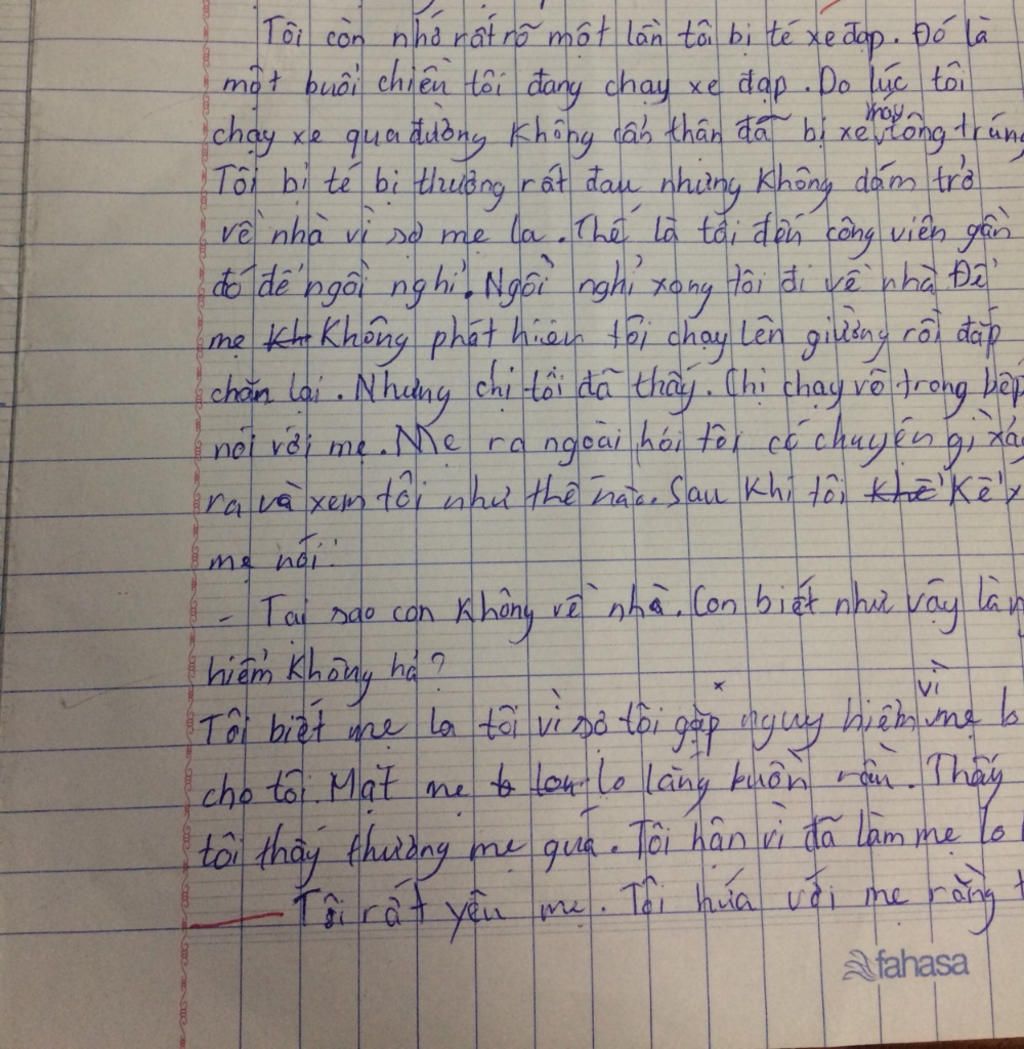 Tôi còn nhớ rất rõ một lần tôi bị té xe đạp. Đó là
một buổi chiều tôi đang chạy xe đạp. Do lúc tôi
máy
chạy xe qua đường không cẩn thận đã bị xe tông trúng
Tôi bị té bị thương rất đau nhưng không dám trở
về nhà vì sợ mẹ la. Thế là tôi đến công viên gần
đó để ngồi nghỉ. Ngồi nghỉ xong tôi đi về nhà Để
mẹ Kh Không phát hiện tôi chạy lên giường rồi đắp
chăn lại. Nhưng chị tôi đã thấy. Chị chạy vô trong bếp
nói với mẹ. Mẹ ra ngoài hỏi tôi có chuyện gì xảy
ra và xem tôi như thế nào. Sau khi tôi khể kể x
mẹ nói:
- Tại sao con không về nhà. Con biết như vậy là
hiểm không hả?
x vì
Tôi biết mẹ la tôi vì sợ tôi gặp nguy hiểm mẹ lo
cho tôi. Mặt mẹ lo lắng buồn rầu. Thấy
tôi thấy thương mẹ quá. Tôi hận vì đã làm mẹ lo l
Tôi rất yêu mẹ. Tôi hứa với mẹ rằng t
fahasa